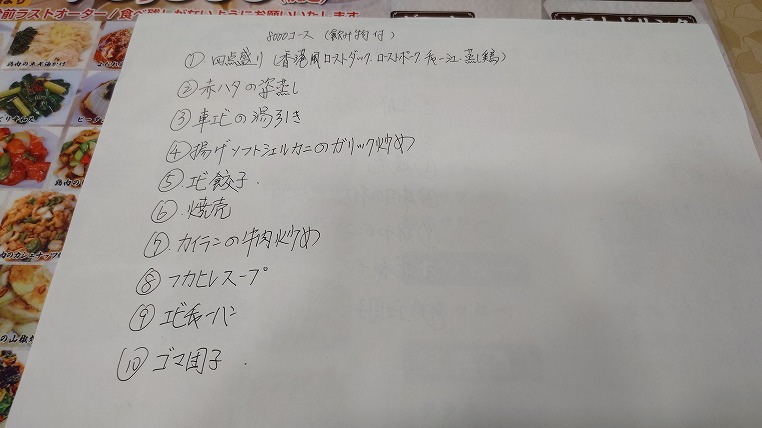 前ラストオーダー/食べ残しがないようにお願いいたします
8000コース (飲み物付)
① 四点盛り (香港風ローストダック. ローストポーク チャーシュー. 蒸し鶏)
② 赤ハタの姿蒸し
③ 車エビの湯引き
④ 揚げソフトシェルカニのガリック炒め
⑤ エビ餃子.
⑥ 焼売
⑦ カイランの牛肉炒め
⑧ フカヒレスープ
⑨ エビチャーハン
⑩ ゴマ団子.
鶏肉のネギ油かけ